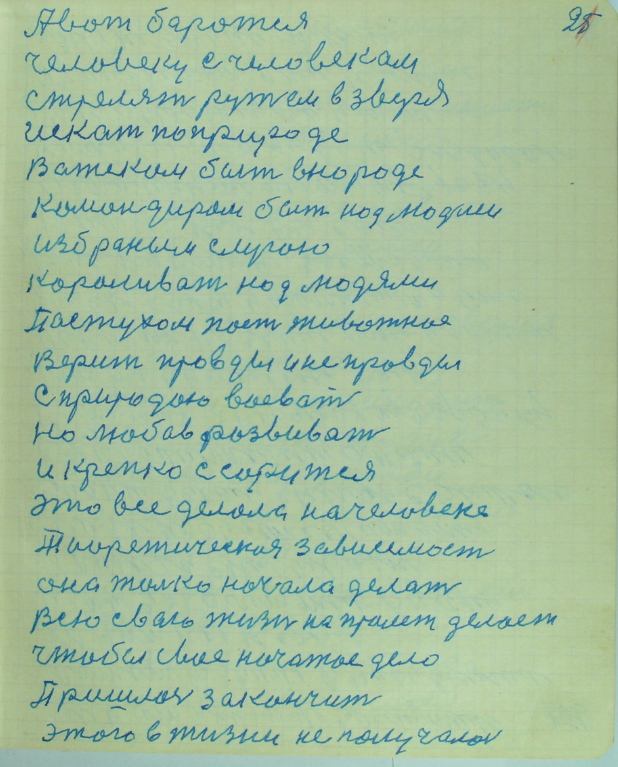 25
Авот баротся
человеку с человекам
стрелят ружем в зверя
искат поприроде
Ватеком быт внороде
Командиром быт над людми
избраным слугою
Короливат над людями
Пастухом поет животное
Верит правды и не правды
С природою воеват
Но любов розвиват
и крепко с соритса
это все делола на человеке
Тиоретическая зависемост
она толко начала делат
Всю сваю жизн на пралет делает
чтобы свое начатое дело
Пришлоя закончит
этого в жизни не получалоя